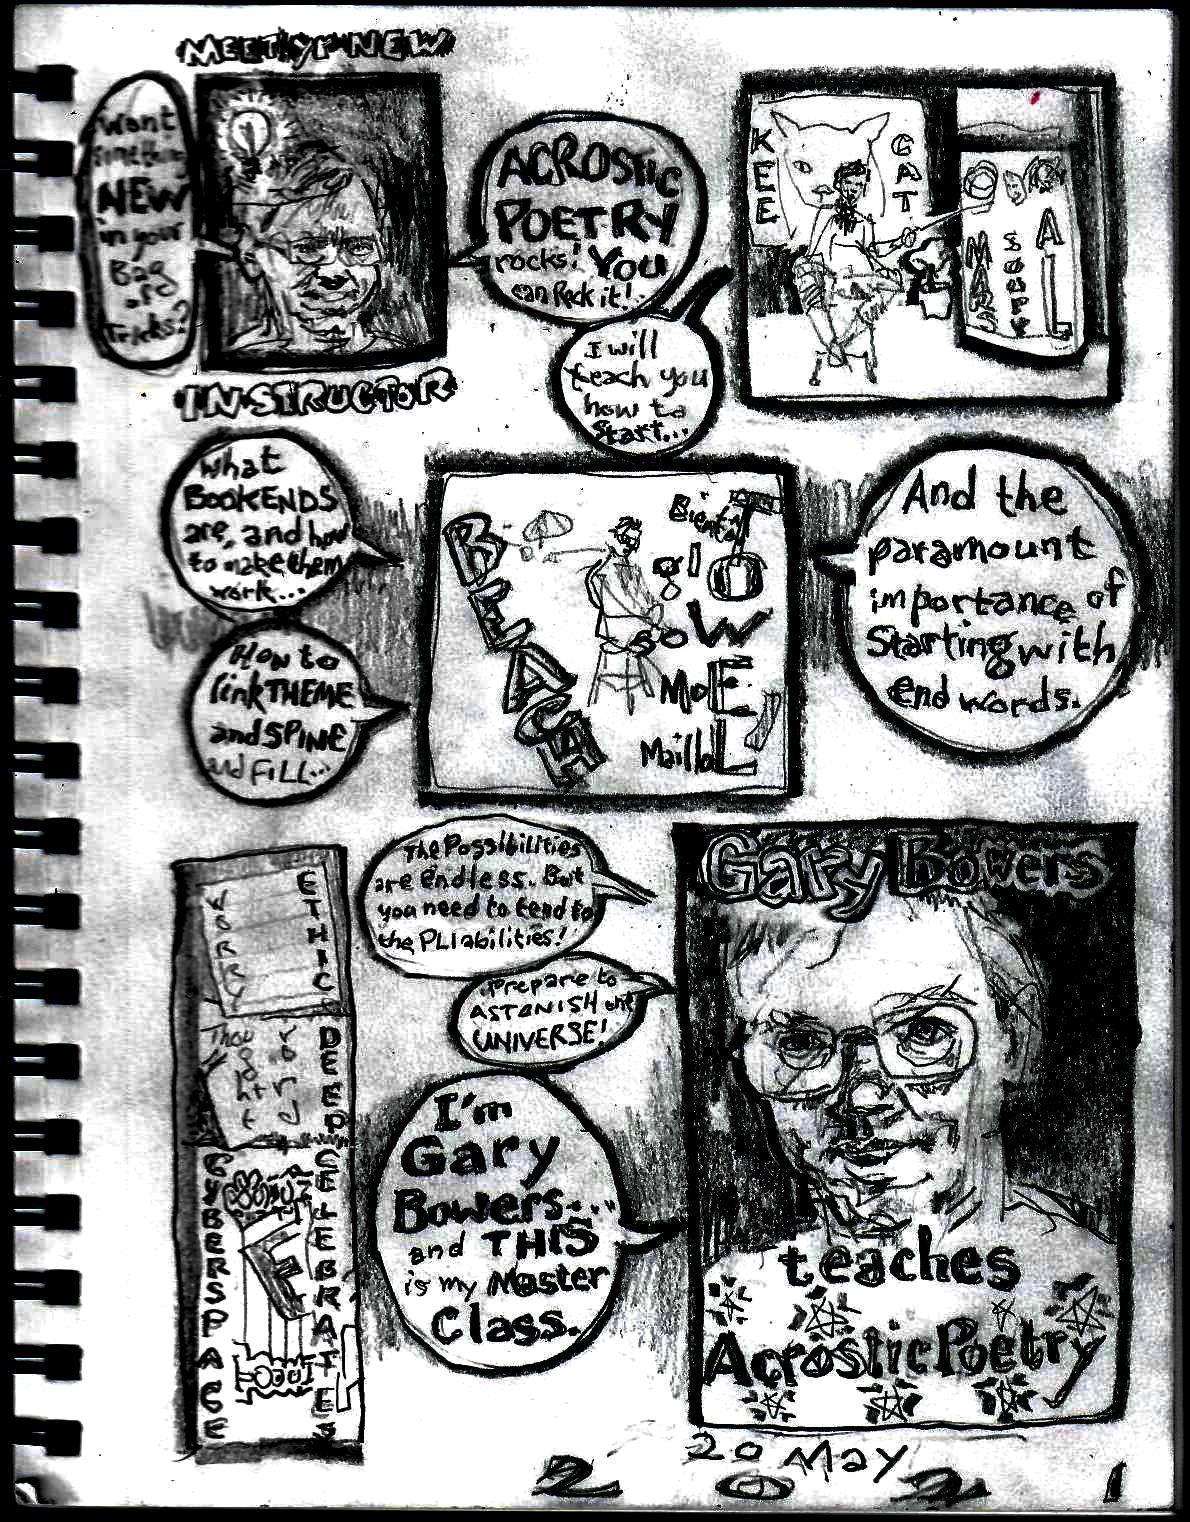 MEET yr NEW
Want
something
NEW
in your
Bag
of
Tricks?
INSTRUCTOR
ACROSTIC
POETRY
rocks! YOU
can Rock it!
I will
teach you
how to
Start...
KEE
CAT
MARS
SOUP
ALL
What
BOOKENDS
are, and how
to make them
work...
How to
link THEME
and SPINE
and FILL...
BLEACH
Bient
gl
So W
MoE
MailloL
And the
paramount
importance of
Starting with
end words.
The Possibilities
are endless. But
you need to tend to
the PLIabilities!
Prepare to
ASTONISH the
UNIVERSE!
I'm
Gary
Bowers...
and THIS
is my Master
Class.
WORRY
ETHIC
DEEP
CYBERSPACE
CELEBRATES
Gary Bowers
teaches
Acrostic Poetry
20 May
2 0 2 1